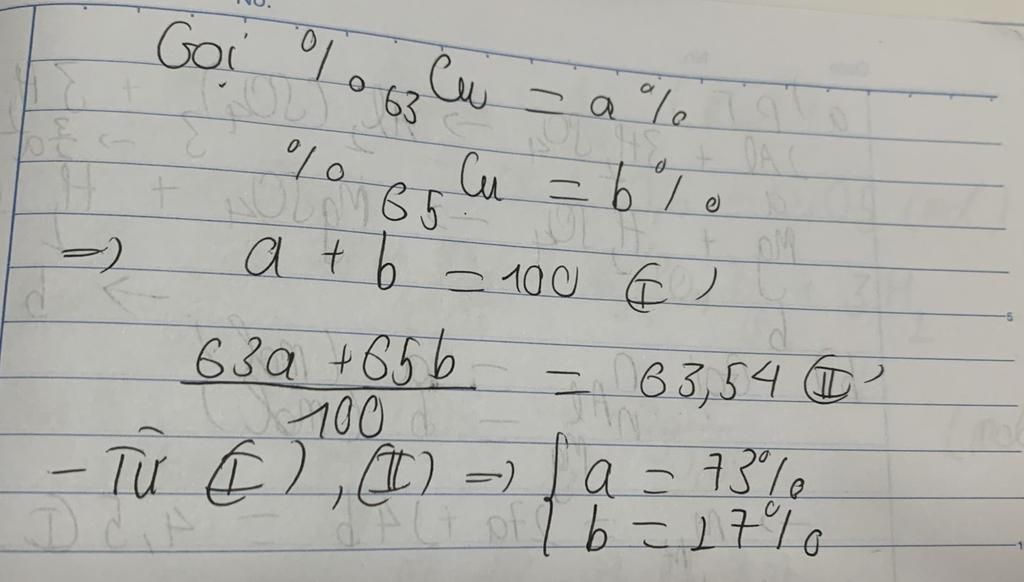 No.
Gọi % 63 Cu = a %
% 65 Cu = b %
=> a + b = 100 (I)
63a + 65b / 100 = 63,54 (II)
- Từ (I), (II) => { a = 73%
{ b = 27%